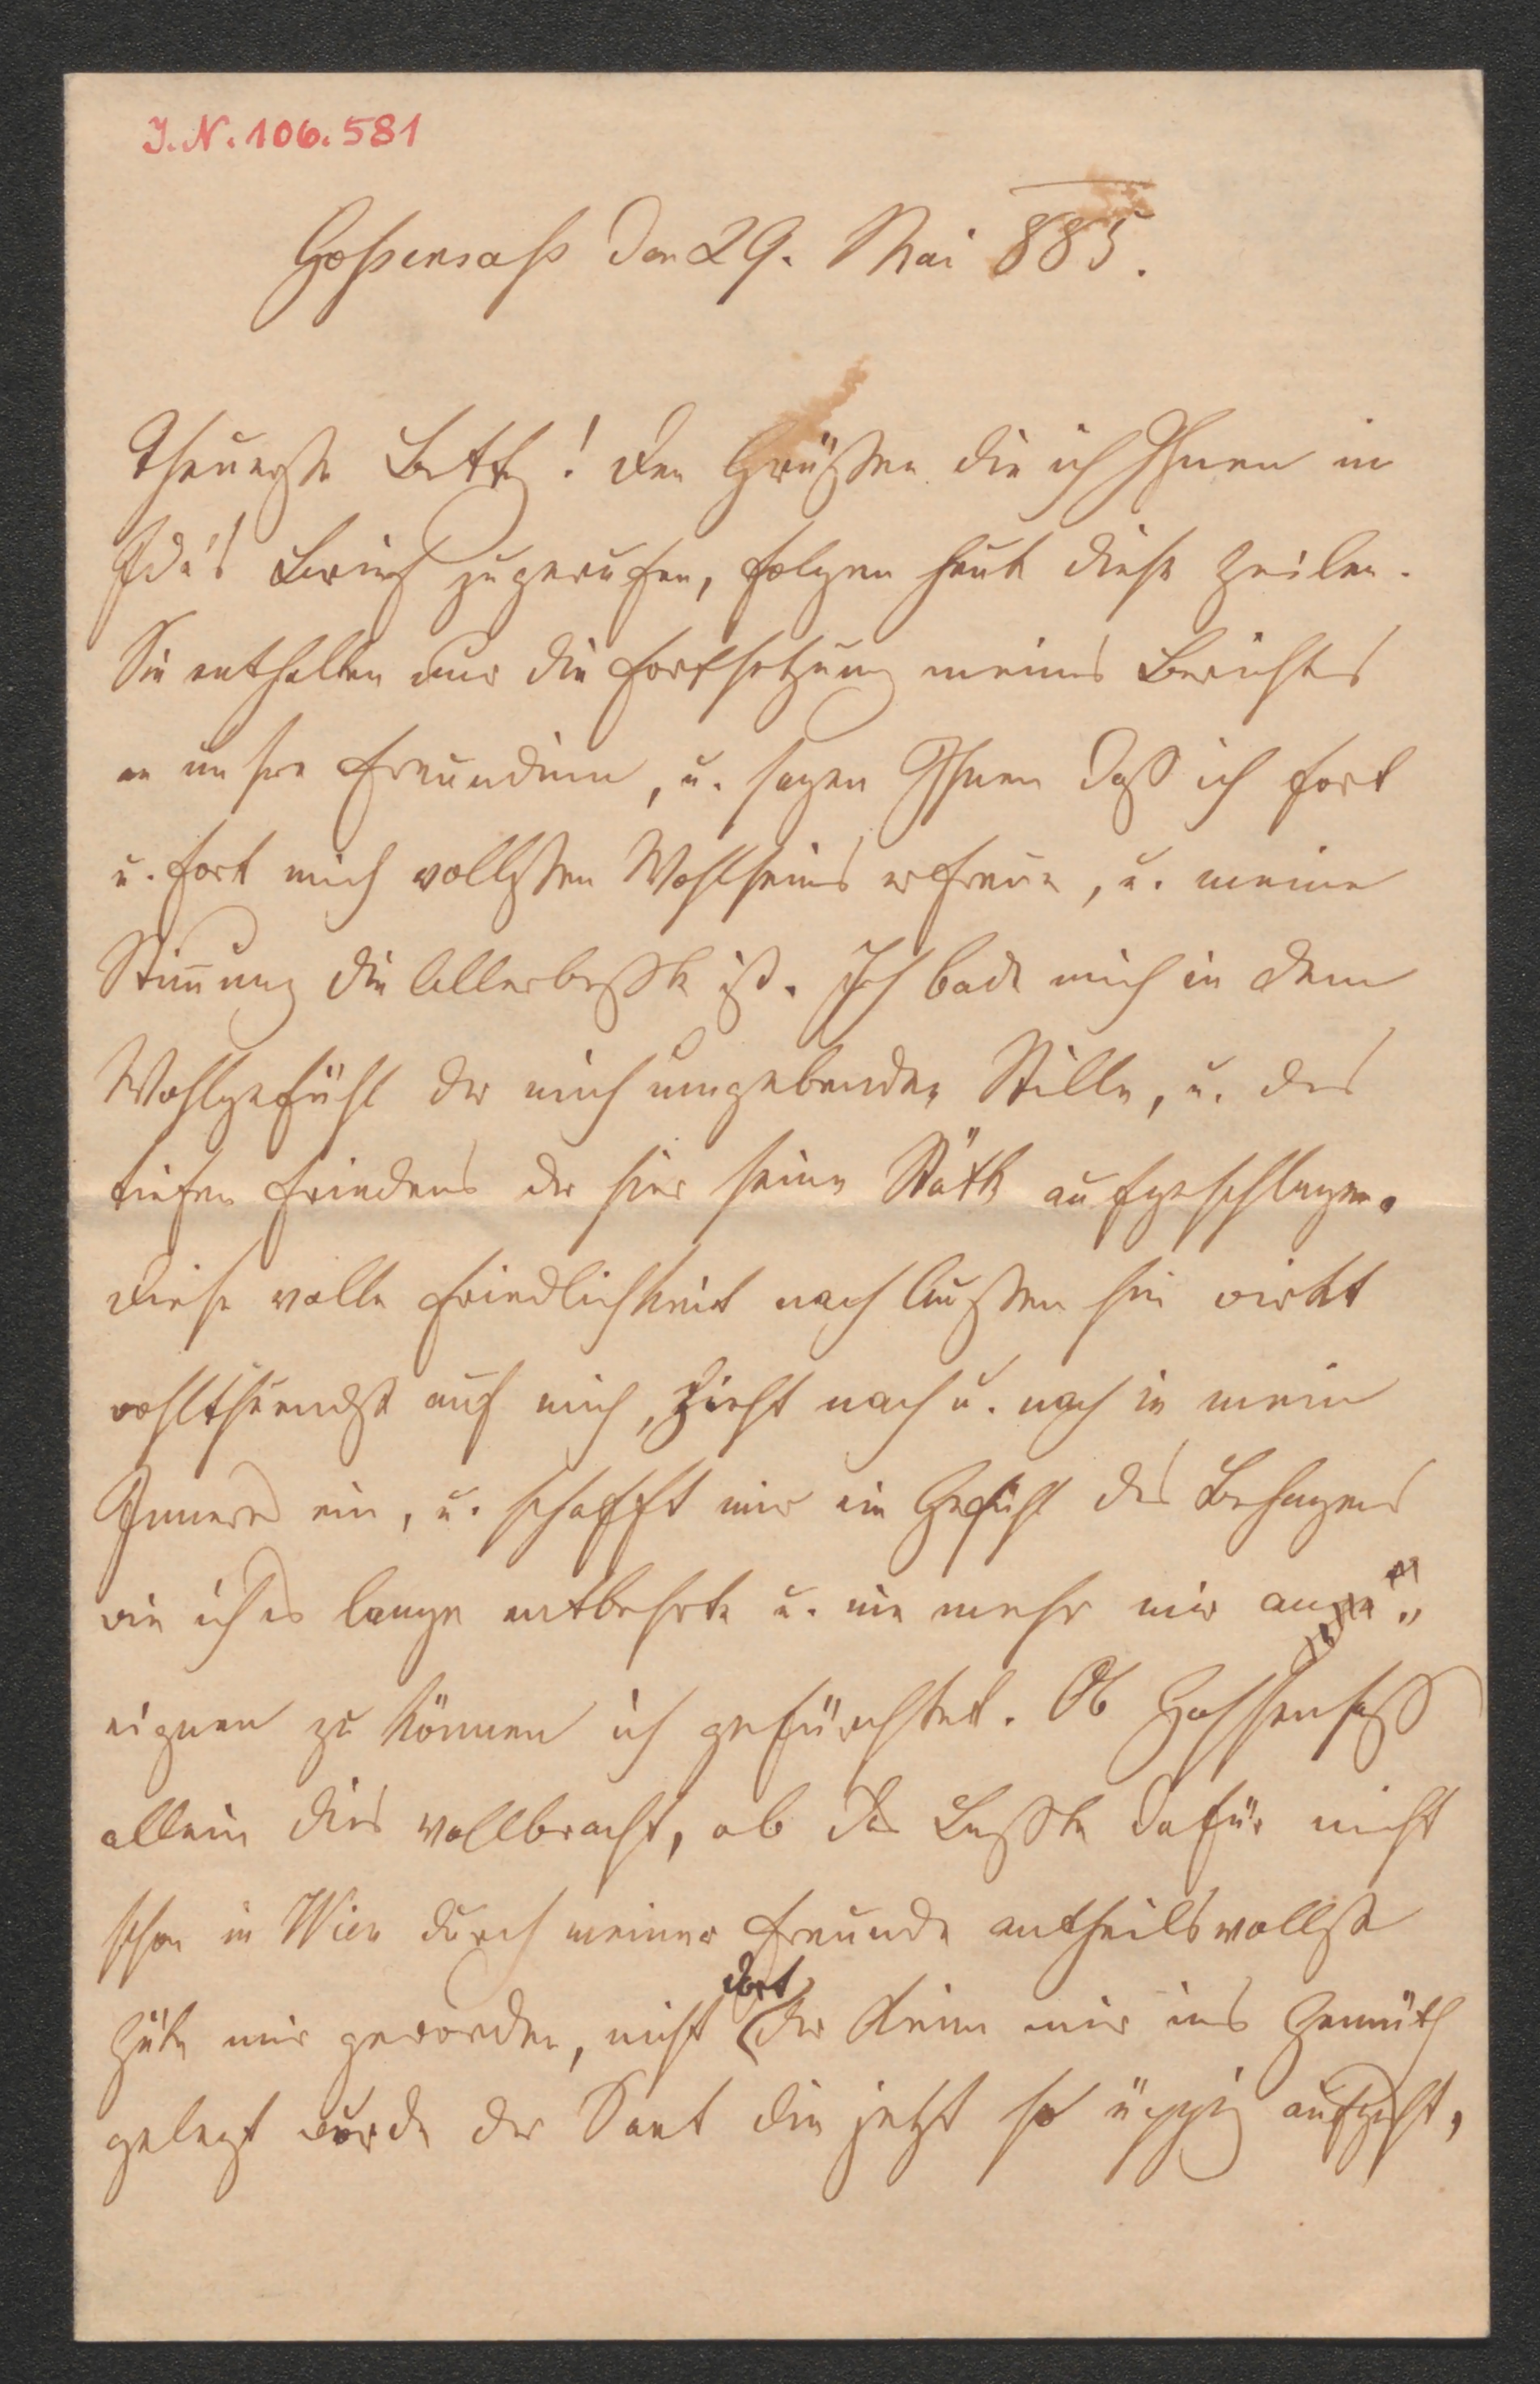 J. N. 106.581
Goßensaß den 29. Mai 885.
Theuerste Betty! Den Grüßen die ich Ihnen in
Ida's Brief zugerufen, folgen heut diese Zeilen.
Sie enthalten nur die Fortsetzung meines Berichtes
an unsre Freundinn, u. sagen Ihnen daß ich fort
u. fort mich vollsten Wohlseins erfreue, u. meine
Stim̄ung die Allerbeste ist. Ich bade mich in dem
Wohlgefühl der mich umgebenden Stille, u. des
tiefen Friedens der hier seine Stätte aufgeschlagen.
Diese volle Friedlichkeit nach Außen hin wirkt
wohlthuendst auf mich, zieht nach u. nach in mein
Inneres ein, u. schafft mir ein Gefühl des Behagens
wie ich es lange entbehrte u. nie mehr mir an„
eignen zu können ich gefürchtet. Ob Gossensaß
allein dies vollbracht, ob das Beste dafür nicht
schon in Wien durch meiner Freunde antheilsvollste
Güte mir geworden, nicht dort der Keim mir ins Gemüth
gelegt wurde der Saat die jetzt so üppig aufgeht,